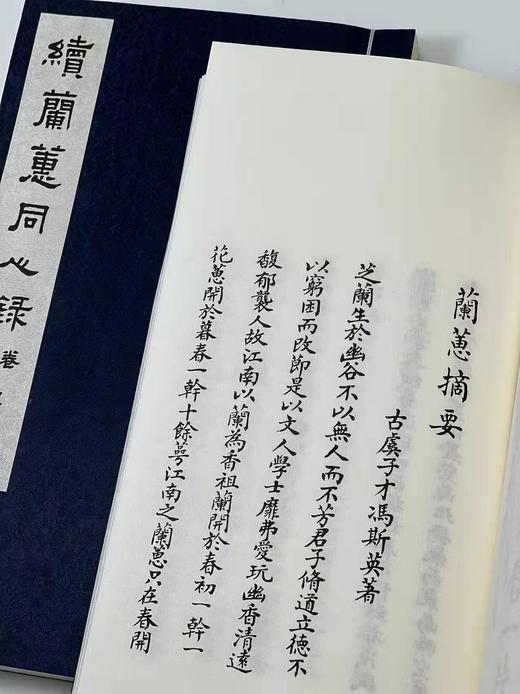 續蘭蕙同心錄
卷
蘭蕙摘要
古虞子才馮斯英著
芝蘭生於幽谷不以無人而不芳君子脩道立德不
以窮困而改節是以文人學士靡弗愛玩幽香清遠
馥郁襲人故江南以蘭為香祖蘭開於春初一幹一
花蕙開於暮春一幹十餘萼江南之蘭蕙只在春開